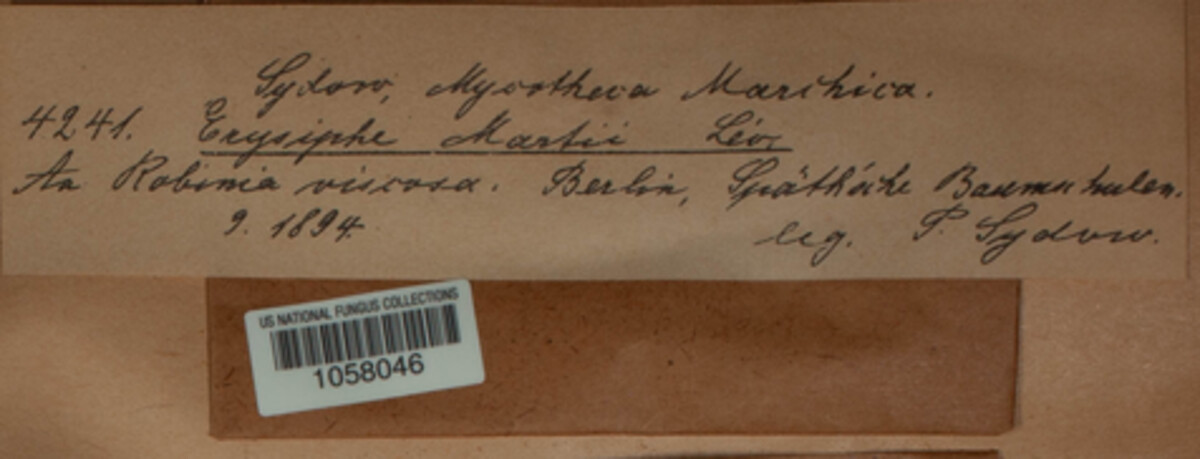 Sydow, Mycotheca Marchica.
4241. Erysiphe Martii Lév.
An Robinia viscosa. Berlin, Späth'sche Baumschulen.
9. 1894.
leg. P. Sydow.
US NATIONAL FUNGUS COLLECTIONS
1058046